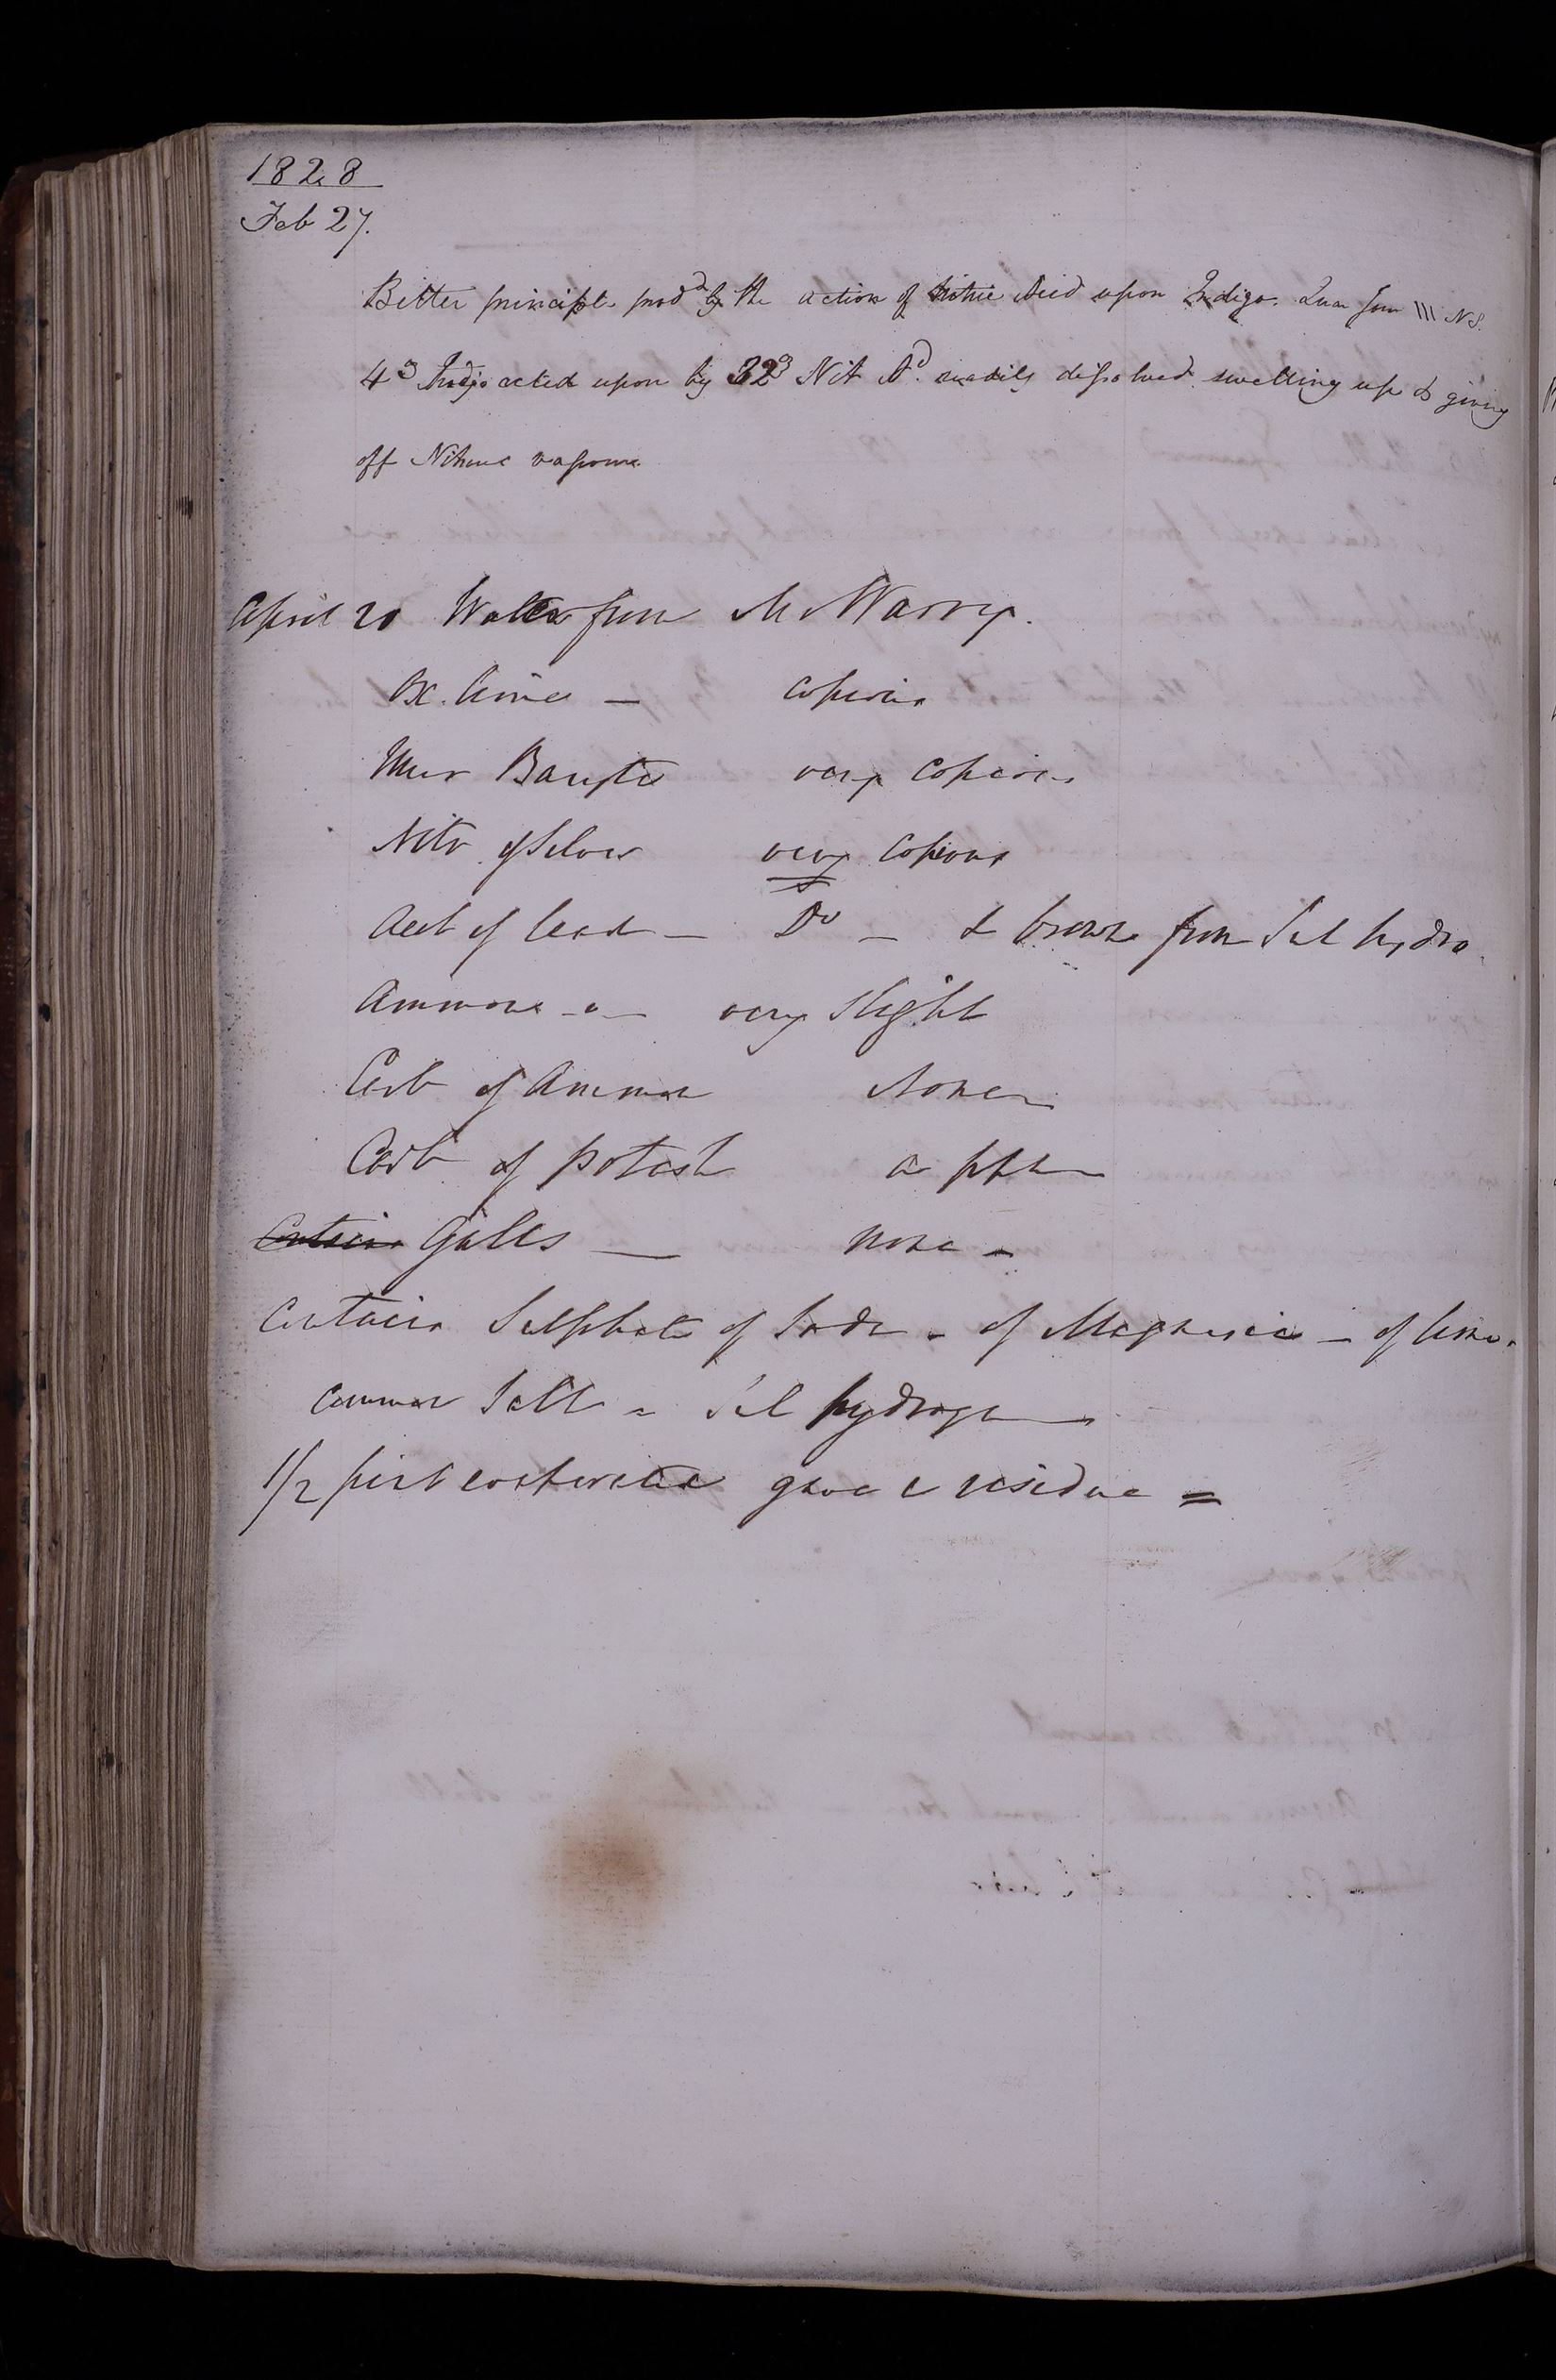 1828
Feb 27.
Bitter principle prod^d by the action of Nitric Acid upon Indigo. Qua Jour III NS.
4ʒ Indigo acted upon by 32ʒ Nit A^d. readily dissolved swelling up & giving
off Nitrous vapours.
April 20 Water from Mr Warry.
Ox. Amm — copious
Mur Baryta very copious
Nitr of Silver very copious
Acet of lead — D^o — & brown from Sul hydro.
Ammonia — very slight
Carb of Ammon None
Carb of potash a ppt
Contains Galls — None —
Contains Sulphate of Soda - of Magnesia - of lime.
Common Salt - Sul hydrogen
1/2 pint evaporated gave a residue =